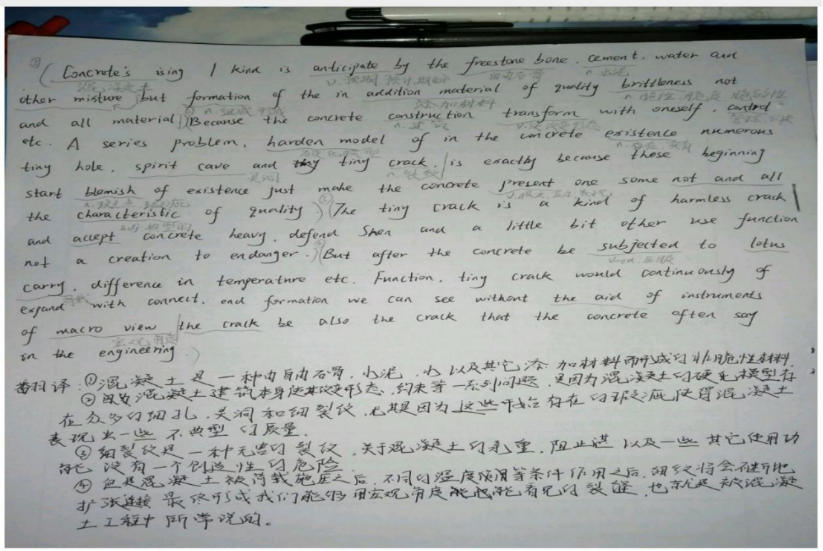 ① (Concrete's ising 1 kind is anticipate by the freestone bone. cement. water and
other mixture, but formation of the in addition material of quality brittleness not
and all material.) ② (Because the concrete construction transform with oneself, control
etc. A series problem, harden model of in the concrete existence numerous
tiny hole, spirit cave and tiny crack, is exactly because these beginning
start blemish of existence just make the concrete present one some not and all
the characteristic of quality.) ③ (The tiny crack is a kind of harmless crack
and accept concrete heavy, defend Shen and a little bit other use function
not a creation to endanger.) ④ (But after the concrete be subjected to lotus
carry, difference in temperature etc. Function, tiny crack would continuously of
expand with connect, end formation we can see without the aid of instruments
of macro view the crack be also the crack that the concrete often say
in the engineering.)
翻译:①混凝土是一种由自由石骨,水泥,水以及其它添加材料而形成的非脆性材料.
②因为混凝土建筑本身使其改变形态,约束等一系列问题,是因为混凝土的硬化模型存
在众多的细孔,灵洞和细裂纹,尤其因为这些开始存在的瑕疵使得混凝土
表现出一些不典型的质量.
③细裂纹是一种无害的裂纹,关于混凝土的承重,阻止进以及一些其它使用功
能没有一个创造性的危险.
④但是混凝土被荷载施压之后,不同的温度使用等条件作用之后,细纹将会不断地
扩张连接最终形成我们能够用宏观角度能看见的裂缝,也就是被混凝
土工程中所常说的。